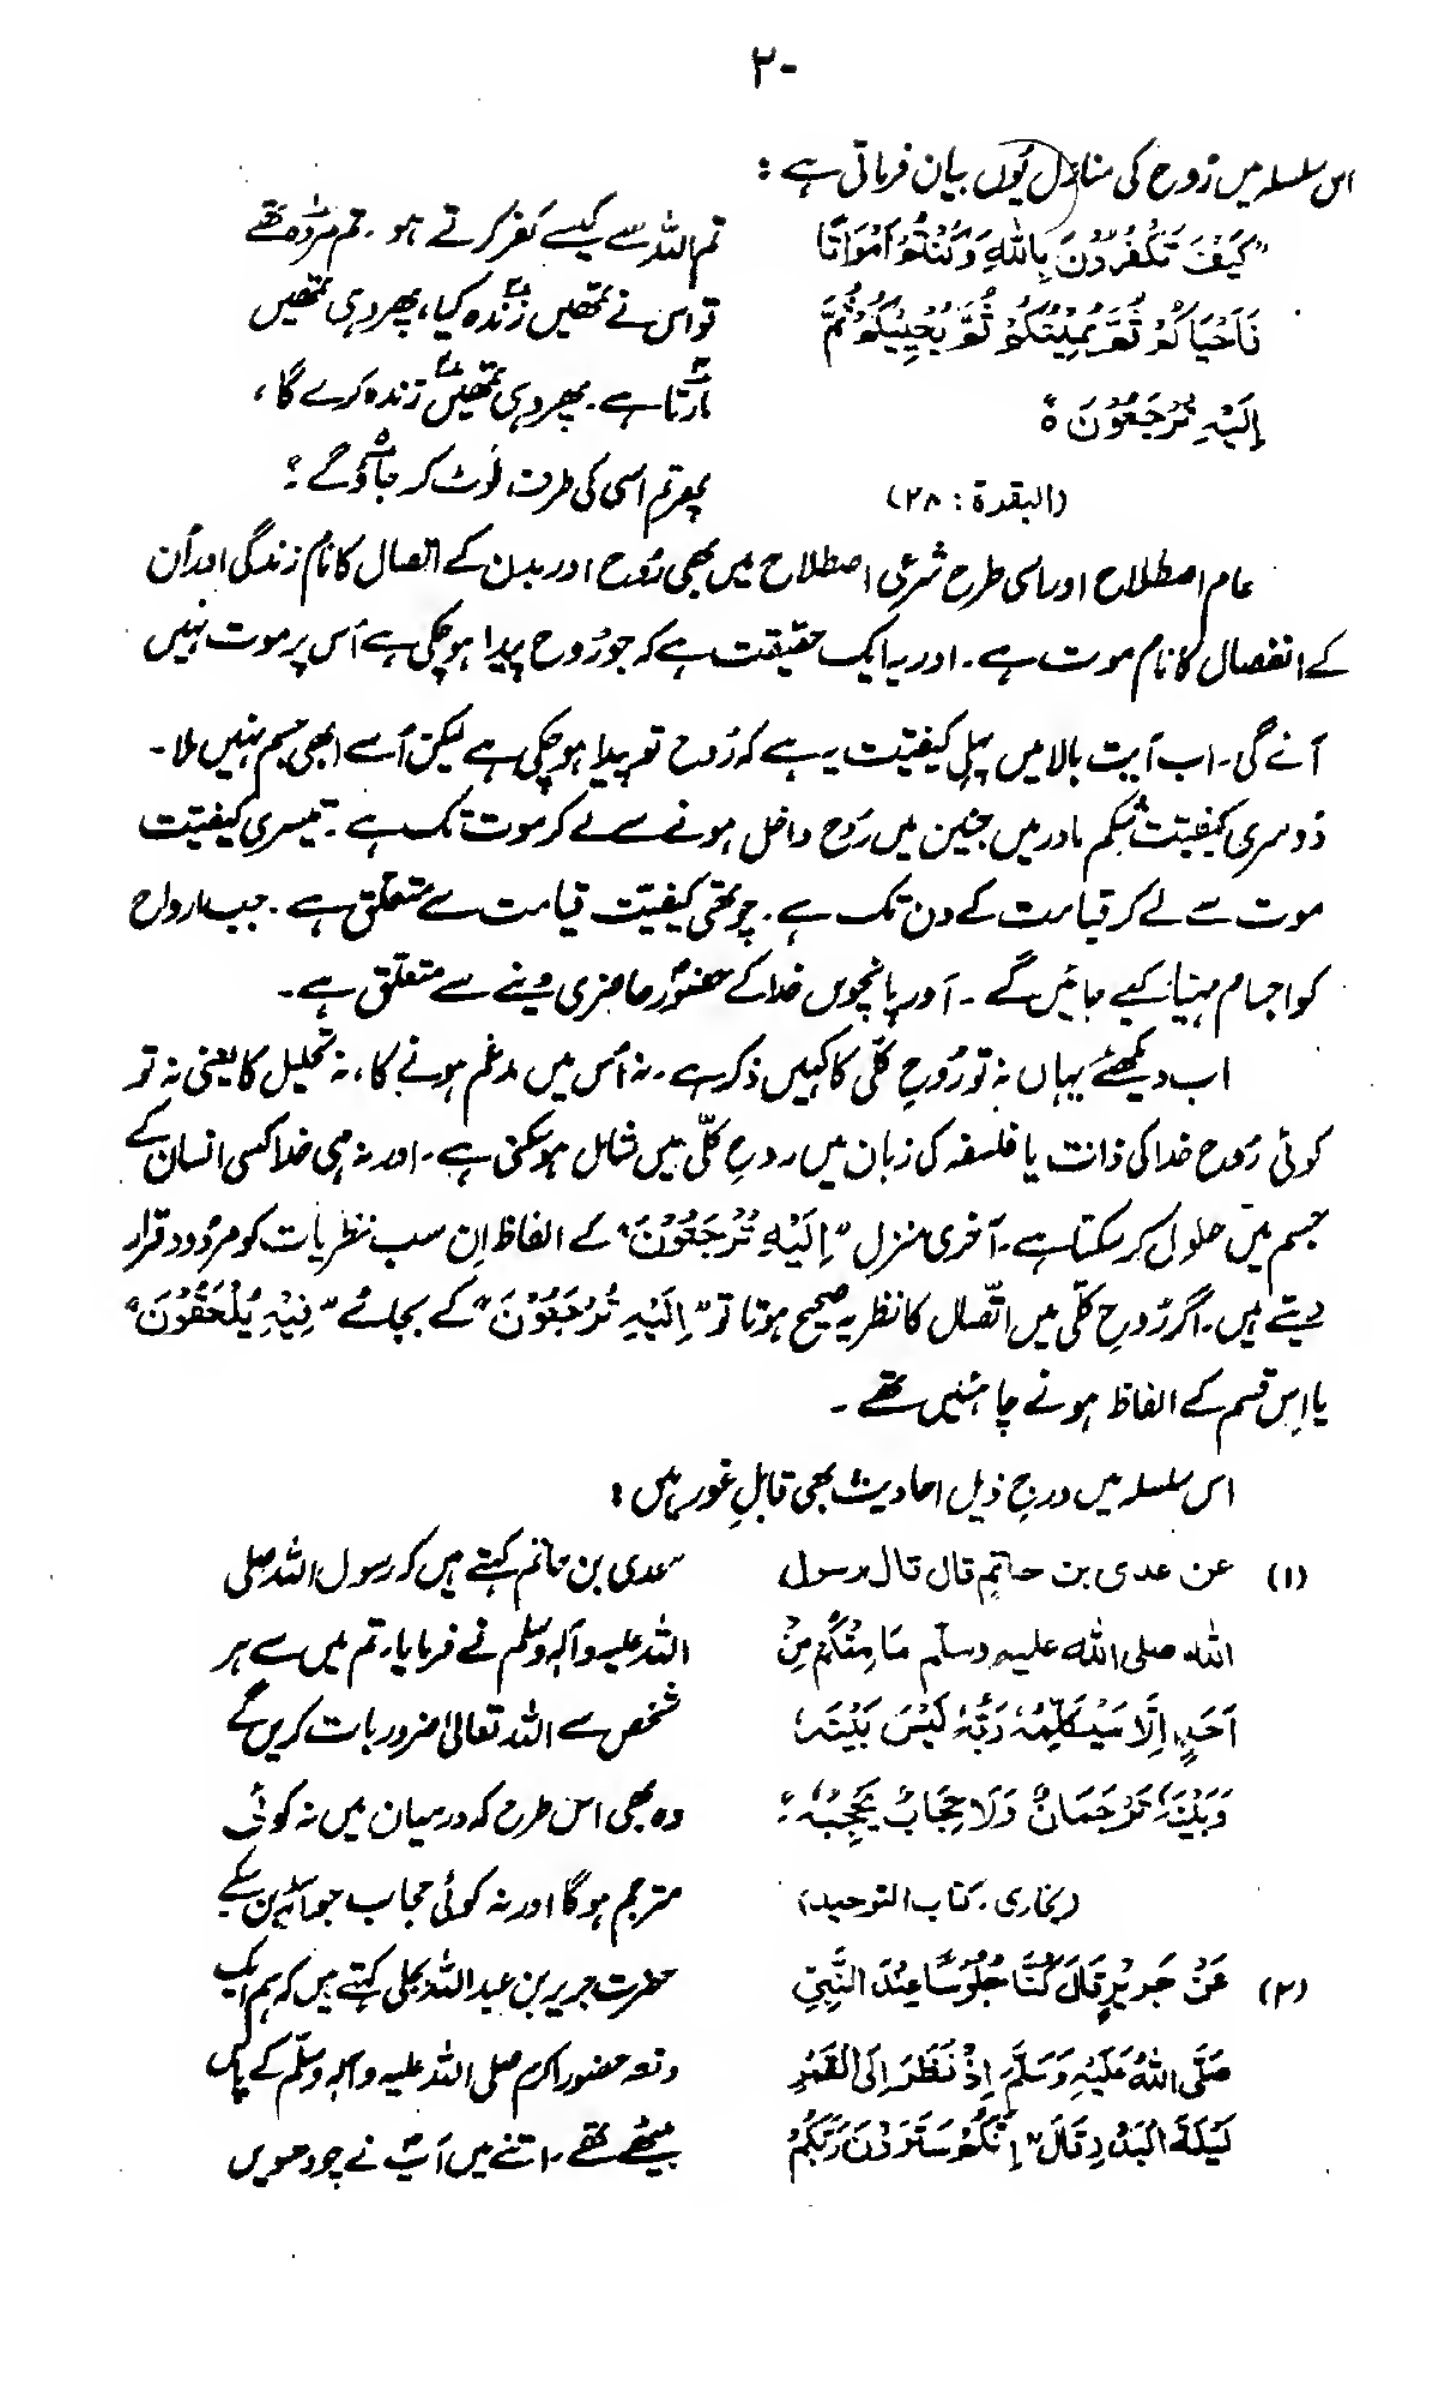 ۲۰
اس سلسلہ میں رُوح کی منازل یُوں بیان فرماتی ہے :
"كَيْفَ تَكْفُرُوْنَ بِاللّٰهِ وَكُنْتُمْ اَمْوَاتًا
فَاَحْيَاكُمْ ثُمَّ يُمِيْتُكُمْ ثُمَّ يُحْيِيْكُمْ ثُمَّ
اِلَيْهِ تُرْجَعُوْنَ ہ
(البقرة : ۲۸)
تم اللہ سے کیسے کفر کرتے ہو۔ تم مُردہ تھے
تو اس نے تمھیں زندہ کیا، پھر وہی تمھیں
مارتا ہے۔ پھر وہی تمھیں زندہ کرے گا،
پھر تم اسی کی طرف لَوٹ کر جاؤ گے ؟
عام اصطلاح اور اسی طرح شرعی اصطلاح میں بھی رُوح اور بدن کے اتصال کا نام زندگی اور اُن
کے انفصال کا نام موت ہے۔ اور یہ ایک حقیقت ہے کہ جو رُوح پیدا ہو چکی ہے اُس پر موت نہیں
آئے گی۔ اب آیت بالا میں پہلی کیفیّت یہ ہے کہ رُوح تو پیدا ہو چکی ہے لیکن اُسے ابھی جسم نہیں ملا۔
دُوسری کیفیّت شکمِ مادر میں جنین میں رُوح داخل ہونے سے لے کر موت تک ہے۔ تیسری کیفیّت
موت سے لے کر قیامت کے دن تک ہے۔ چوتھی کیفیّت قیامت سے متعلّق ہے۔ جب ارواح
کو اجسام مہیّا کیے جائیں گے۔ اَور پانچویں خدا کے حضُور حاضری دینے سے متعلّق ہے۔
اب دیکھئے یہاں نہ تو رُوحِ کلّی کا کہیں ذکر ہے۔ نہ اُس میں مدغم ہونے کا، نہ تحلیل کا یعنی نہ تو
کوئی رُوح خدا کی ذات یا فلسفہ کی زبان میں روحِ کلّی میں شامل ہو سکتی ہے۔ اور نہ ہی خدا کسی انسان کے
جسم میں حلول کر سکتا ہے۔ آخری منزل "اِلَيْهِ تُرْجَعُوْنَ" کے الفاظ اِن سب نظریات کو مردُود قرار
دیتے ہیں۔ اگر رُوحِ کلّی میں اتّصال کا نظریہ صحیح ہوتا تو "اِلَيْهِ تُرْجَعُوْنَ" کے بجائے "فِيْهِ يُلْحَقُوْنَ"
یا اِس قسم کے الفاظ ہونے چاہئیں تھے۔
اس سلسلہ میں درجِ ذیل احادیث بھی قابلِ غور ہیں :
(۱) عن عدی بن حاتم قال قال رسول
اللہ صلی اللہ علیہ وسلّم مَا مِنْكُمْ مِنْ
اَحَدٍ اِلَّا سَيُكَلِّمُهٗ رَبُّهٗ لَيْسَ بَيْنَهٗ
وَبَيْنَهٗ تَرْجَمَانٌ وَلَا حِجَابٌ يَحْجِبُهٗ :
(بخاری۔ کتاب التوحید)
عدی بن حاتم کہتے ہیں کہ رسول اللہ صلی
اللہ علیہ وآلہ وسلم نے فرمایا۔ تم میں سے ہر
شخص سے اللہ تعالیٰ ضرور بات کریں گے
وہ بھی اس طرح کہ درمیان میں نہ کوئی
مترجم ہوگا اور نہ کوئی حجاب جو آڑ بن سکے
(۲) عَنْ جَرِيْرٍ قَالَ كُنَّا جُلُوْسًا عِنْدَ النَّبِيِّ
صَلَّى اللّٰهُ عَلَيْهِ وَسَلَّمَ اِذْ نَظَرَ اِلَى الْقَمَرِ
لَيْلَةَ الْبَدْرِ قَالَ "اِنَّكُمْ سَتَرَوْنَ رَبَّكُمْ
حضرت جریر بن عبداللہ بجلی کہتے ہیں کہ ہم ایک
دفعہ حضور اکرم صلی اللہ علیہ وآلہٖ وسلّم کے پاس
بیٹھے تھے۔ اتنے میں آپؐ نے چودھویں